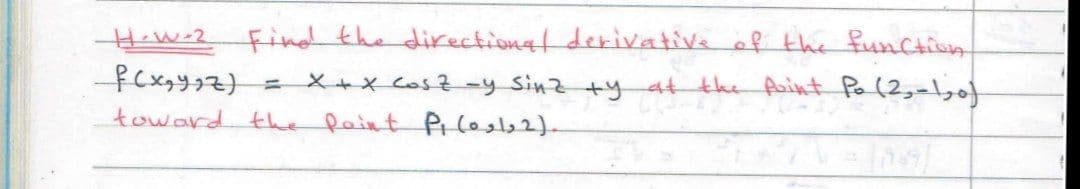 H.W-2 Find the directional derivative of the function
f(x,y,z) = x + x cosz - y sinz + y at the point P₀ (2,-1,0)
toward the point P₁ (0,1,2).